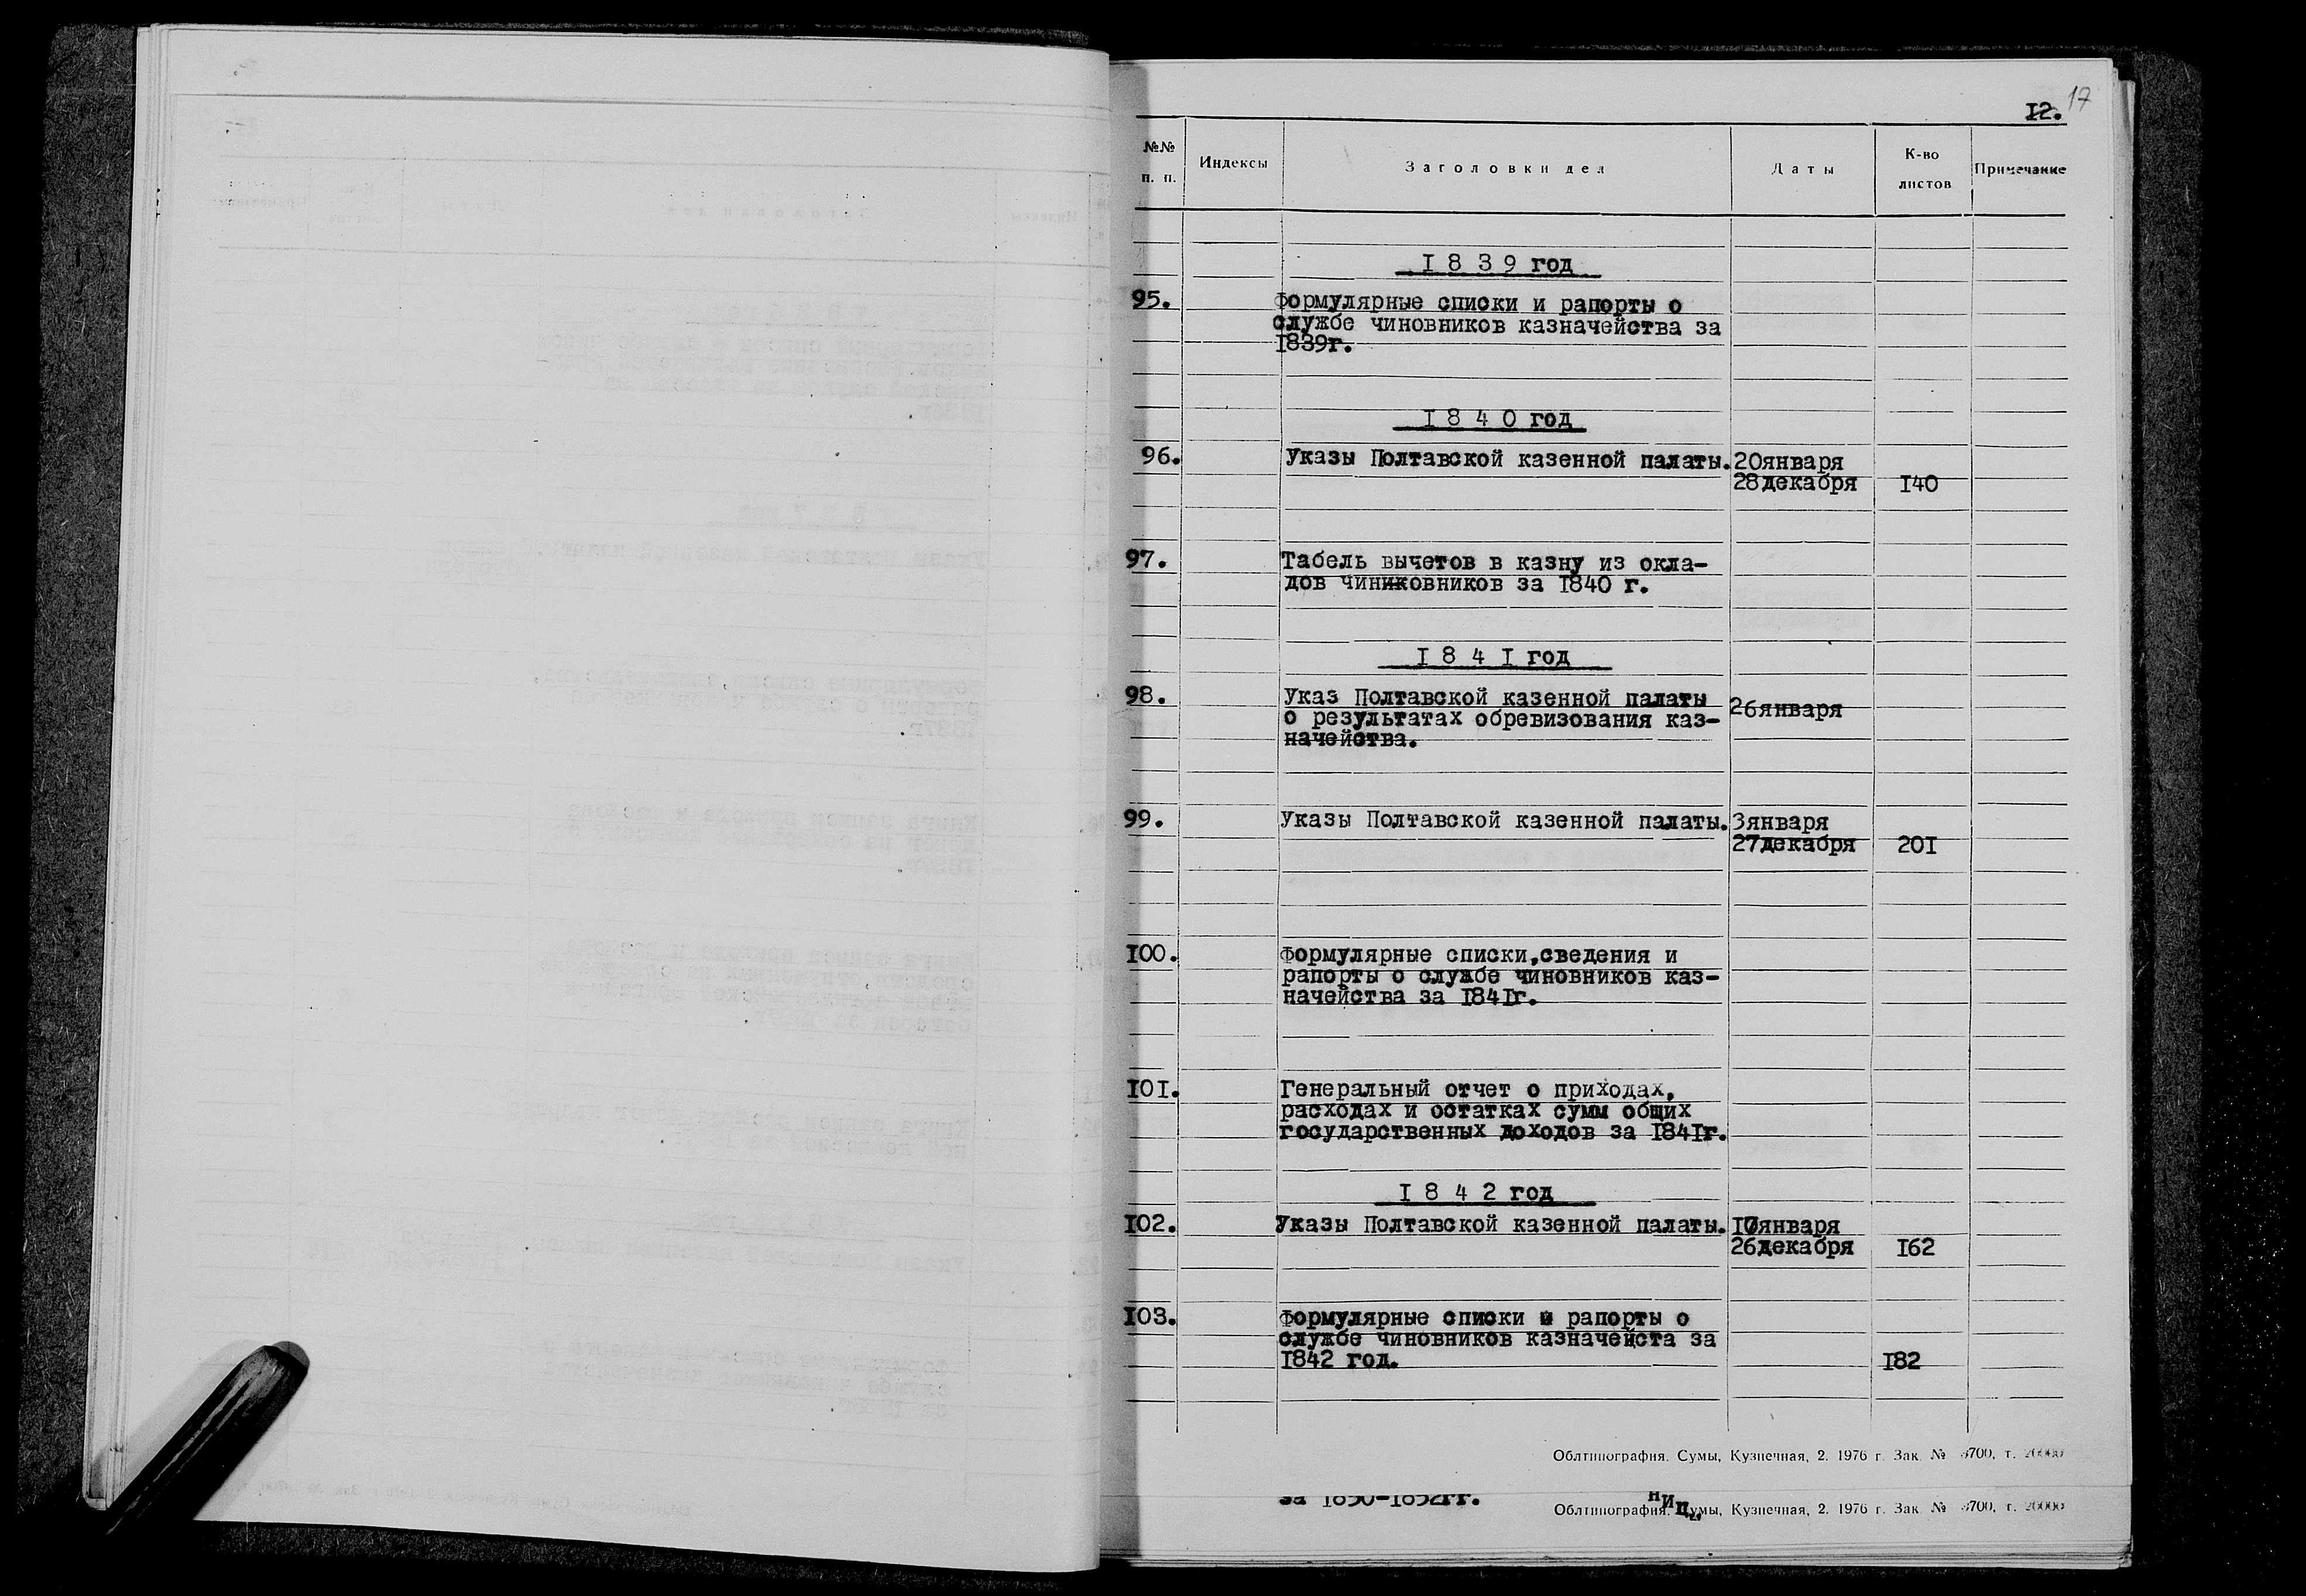 12. 17
№№ п. п. Индексы Заголовки дел Даты К-во листов Примечание
1839 год
95. Формулярные списки и рапорты о
службе чиновников казначейства за
1839г.
1840 год
96. Указы Полтавской казенной палаты. 20января
28декабря 140
97. Табель вычетов в казну из окла-
дов чиниковников за 1840 г.
1841 год
98. Указ Полтавской казенной палаты 26января
о результатах обревизования каз-
начейства.
99. Указы Полтавской казенной палаты. 3января
27декабря 201
100. Формулярные списки,сведения и
рапорты о службе чиновников каз-
начейства за 1841г.
101. Генеральный отчет о приходах,
расходах и остатках сумм общих
государственных доходов за 1841г.
1842 год
102. Указы Полтавской казенной палаты. января
26декабря 162
103. Формулярные списки и рапорты о
службе чиновников казначейста за
1842 год. 182
Облтипография. Сумы, Кузнечная, 2. 1976 г. Зак. № 3700, т. 20000
за 1850-1852гг.
Облтипография. Сумы, Кузнечная, 2. 1976 г. Зак. № 3700, т. 20000